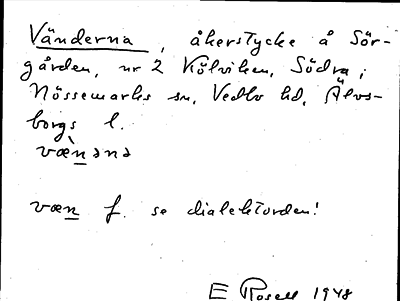 Vänderna, åkerstycke å Sör-
gården, nr 2 Kölviken, Södra i
Nössemarks sn, Vedbo hd, Älvs-
borgs l.
væ̀nənə
væn f. se dialektorden!
E Rosell 1948